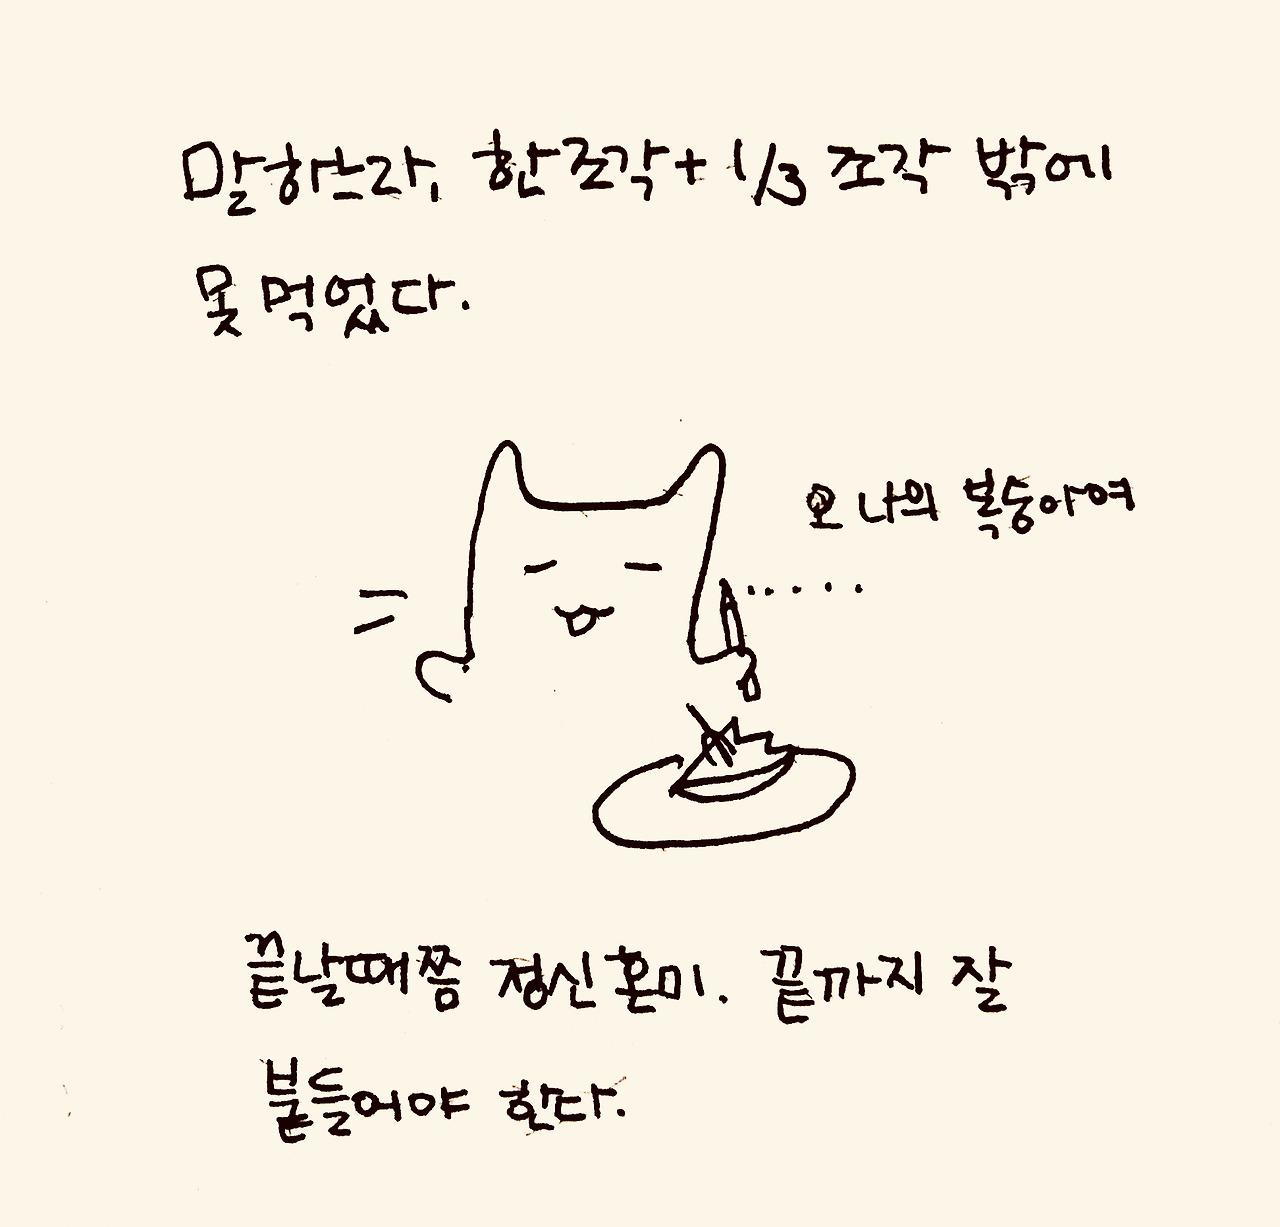 말하느라, 한조각+ 1/3 조각 밖에
못 먹었다.
오 나의 복숭아여
.....
끝날때쯤 정신 혼미. 끝까지 잘
붙들어야 한다.